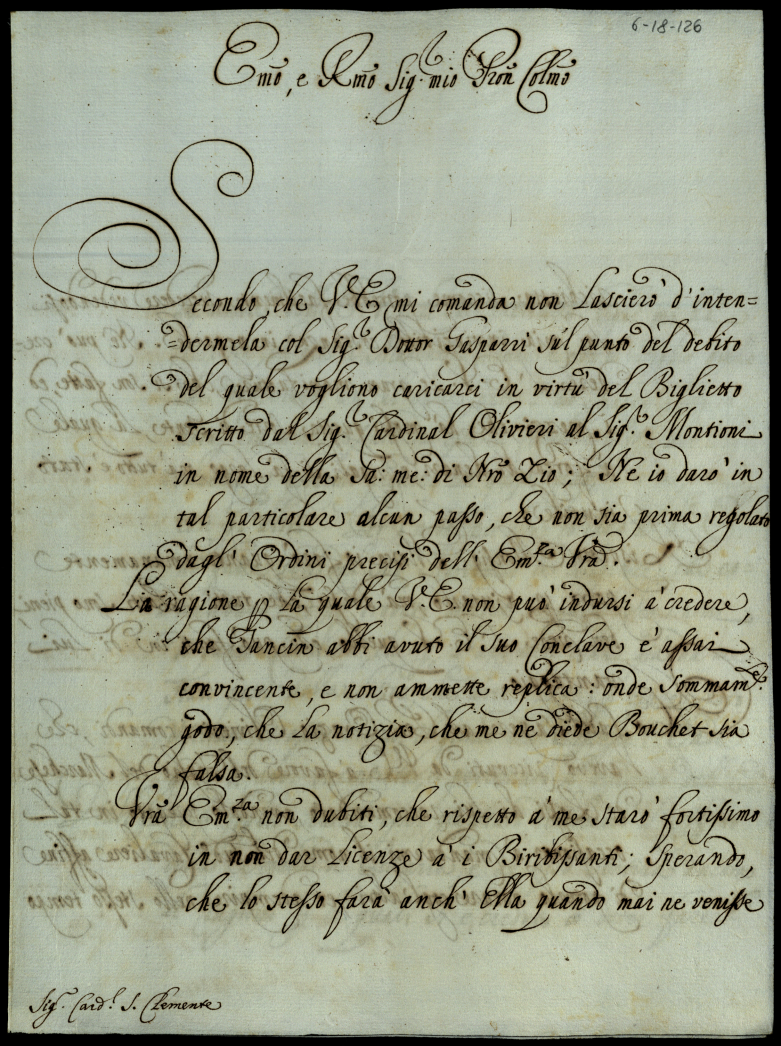 6-18-126
Emõ, e Rmõ Sig.r mio Pron Colmõ
Secondo, che V. E. mi comanda non Lascierò d'inten=
=dermela col Sig.r Dottor Gasparri sùl punto del debito
del quale vogliono caricarci in virtù del Biglietto
scritto dal Sig.r Cardinal Olivieri al Sig.r Montioni
in nome della Sa: me: di Nrõ Zio; Nè io darò in
tal particolare alcun passo, che non sia prima regolato
dagl' Ordini precisi dell' Em.za Vrã.
La ragione p la quale V. E. non può indursi à credere,
che Tancin abbi avuto il suo Conclave è assai
convincente, e non ammette replica: onde sommam.te
godo, che la notizia, che me ne diede Bouchet sia
falsa.
Vrã Em.za non dubiti, che rispetto à me starò fortissimo
in non dar Licenze à i Biribissanti; Sperando,
che lo stesso farà anch' Ella quando mai ne venisse
Sig.r Card.l S. Clemente